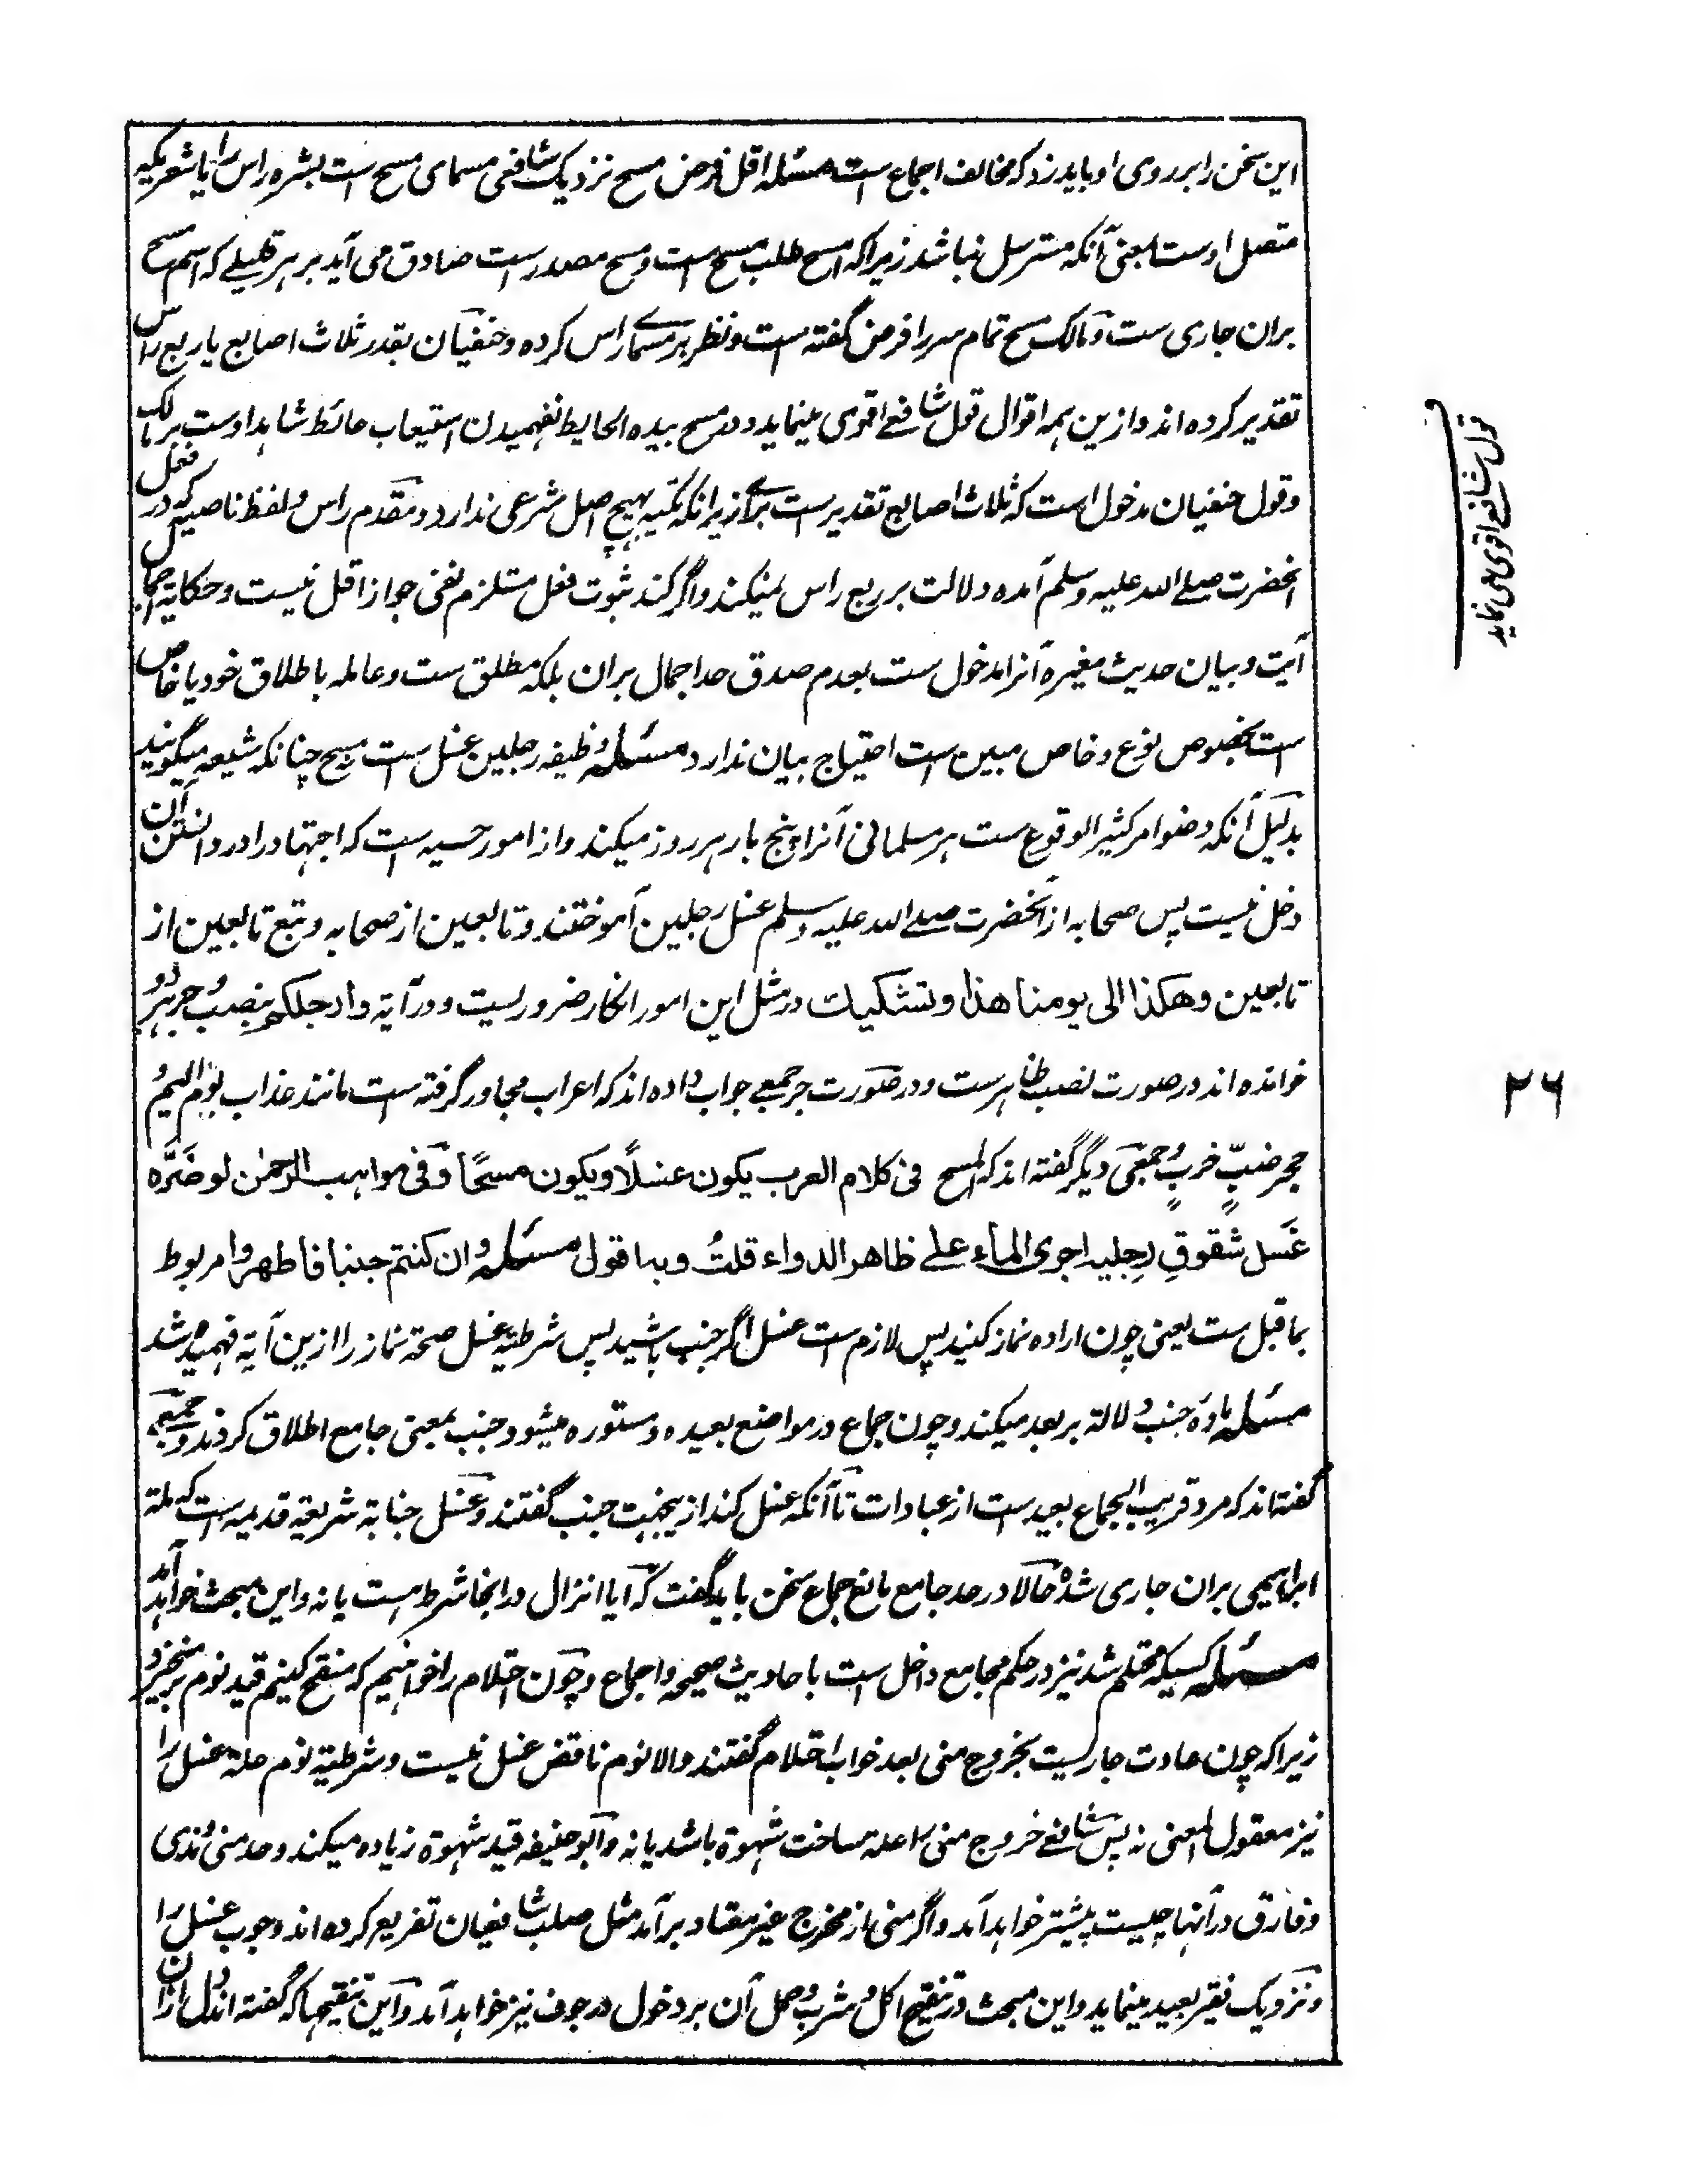 این سخن را بر روی او باید زد که مخالف اجماع است مسئله اقل فرض مسح نزدیک شافعی مسمای مسح است بشره راس را یا شعریکه
متصل اوست بمعنی آنکه مسترسل نباشد زیرا که امسح طلب مسح است و مسح مصدر است صادق می آید بر هر قلیلے که اسم مسح
بران جاری ست و مالک مسح تمام سر را فرض گفته است و نظر بر مسمائے راس کرده و حنفیان بقدر ثلاث اصابع یا ربع راس
تقدیر کرده اند و ازین همه اقوال قول شافعے اقوی مینماید و در مسح بیده الحایط نفهمیدن استیعاب حائط شاهد اوست بر مالک
وقول حنفیان مدخول است که ثلاث اصابع تقدیر ست برائے زیرانکه تکیه بهیچ اصل شرعی ندارد و مقدم راس و لفظ ناصیه که در فعل
انحضرت صلے الله علیه وسلم آمده دلالت بر ربع راس نمیکند واگر کند ثبوت فعل مستلزم نفی جواز اقل نیست و حکایة اجمال
آیت و بیان حدیث مغیره آنرا مدخول ست بعدم صدق حد اجمال بران بلکه مطلق ست و عامله باطلاق خود یا خاص
ست بخصوص نوع و خاص مبین ست احتیاج ببیان ندارد مسئله وظیفه رجلین غسل ست مسح چنانکه شیعه میگویند
بدلیل آنکه وضو امر کثیر الوقوع ست هر مسلمانی آنرا پنج بار هر روز میکند و از امور حسیه است که اجتهاد را در دانستن آن
دخل نیست پس صحابه از آنحضرت صلے الله علیه وسلم غسل رجلین آموختند و تابعین از صحابه و تبع تابعین از
تابعین وهکذا الی یومنا هذا وتشکیک در مثل این امور انکار ضروریست و در آیة وارجلکم بنصب و جر هر دو
خوانده اند در صورت نصب ظاهر ست و در صورت جر جمعے جواب داده اند که اعراب مجاور گرفته است مانند عذاب یوم الیم و
حجر ضبٍّ خربٍ و جمعی دیگر گفته اند که المسح فی کلام العرب یکون غسلًا ویکون مسحًا وفی مواهب الرحمن لو ضَرَّه
غَسل شقوقِ رِجلیه اجری الماء علے ظاهر الدواء قلتُ وبه اقول مسئله وان کنتم جنبا فاطهروا مربوط
بما قبل ست یعنی چون اراده نماز کنید پس لازم ست غسل اگر جنب باشید پس شرطیة غسل صحة نماز را ازین آیة فهمیده شد
مسئله ماده جنب دلالة بر بعد میکند و چون جماع در مواضع بعیده و مستوره میشود جنب بمعنی جامع اطلاق کردند و جمعے
گفته اند که مرد قریب الجماع بعید ست از عبادات تا آنکه غسل کند ازینجهت جنب گفتند و غسل جنابة شریعة قدیمه است که ملة
ابراهیمی بران جاری شده حالا در حد جامع مانع جماع سخن باید گفت که آیا انزال در اینجا شرط است یا نه و این مبحث خواهد آمد
مسئله کسیکه محتلم شد نیز در حکم مجامع داخل ست باحادیث صحیحه و اجماع و چون احتلام را خواهیم که منقح کنیم قید نوم بر میخیزد
زیرا که چون عادت جاریست بخروج منی بعد خواب احتلام گفتند والا نوم ناقض غسل نیست و شرطیة نوم علة غسل را
نیز معقول المعنی نه پس شافعے خروج منی را علة ساخت شهوة باشد یا نه و ابو حنیفه قید شهوة زیاده میکند و حد منی و مذی
و فارق در آنها چیست پیشتر خواهد آمد و اگر منی از مخرج غیر معتاد برآمد مثل صلب شافعیان تفریع کرده اند وجوب غسل را
و نزدیک فقیر بعید مینماید و این مبحث در تنقیح اکل و شرب و حمل آن بر دخول در جوف نیز خواهد آمد و این تنقیحها که گفته اند اول ازان
قول شافعے اقوی می نماید
۲۶